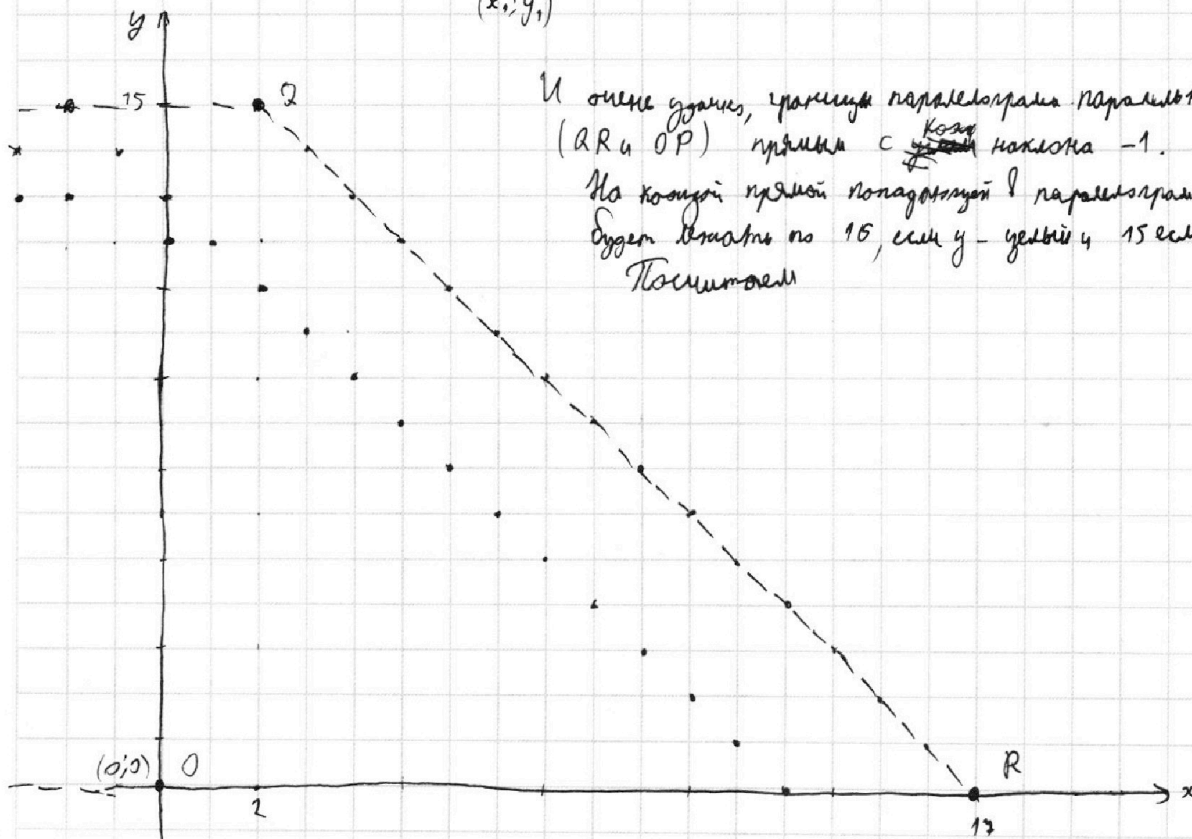 (x₁; y₁)
y
15
Q
И очень удачно, границы паралелограма паралельн
(QR и OP) прямым с коэф наклона -1.
На каждой прямой попадающей в паралелограм
будет лежать по 16, если y - целый и 15 есл
Посчитаем
(0;0) O
2
R
17
x